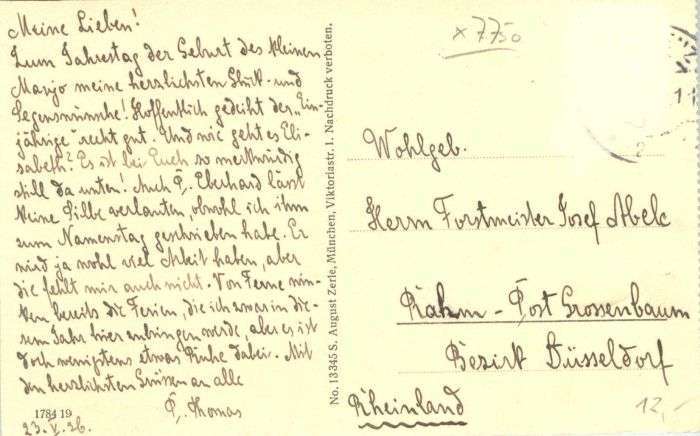 Meine Lieben!
Zum Jahrestag der Geburt des kleinen
Masjo meine herzlichsten Glück- und
Segenswünsche! Hoffentlich gedeiht der „Ein-
jährige“ recht gut. Und wie geht es Eli-
sabeth? Es ist bei Euch so merkwürdig
still da unten! Auch P. Eberhard lässt
keine Silbe verlauten, obwohl ich ihm
zum Namenstag geschrieben habe. Er
wird ja wohl viel Arbeit haben, aber
die fehlt mir auch nicht. Von Ferne win-
ken bereits die Ferien, die ich zwar in die-
sem Jahr hier zubringen werde, aber es ist
doch wenigstens etwas Ruhe dabei. Mit
den herzlichsten Grüssen an alle
P. Thomas
1784 19
23. V. 26.
No. 13345 S. August Zerle, München, Viktoriastr. 1. Nachdruck verboten.
x 7750
Wohlgeb.
Herrn Forstmeister Josef Abels
Rahm - Post Grossenbaum
Bezirk Düsseldorf
Rheinland
12,-